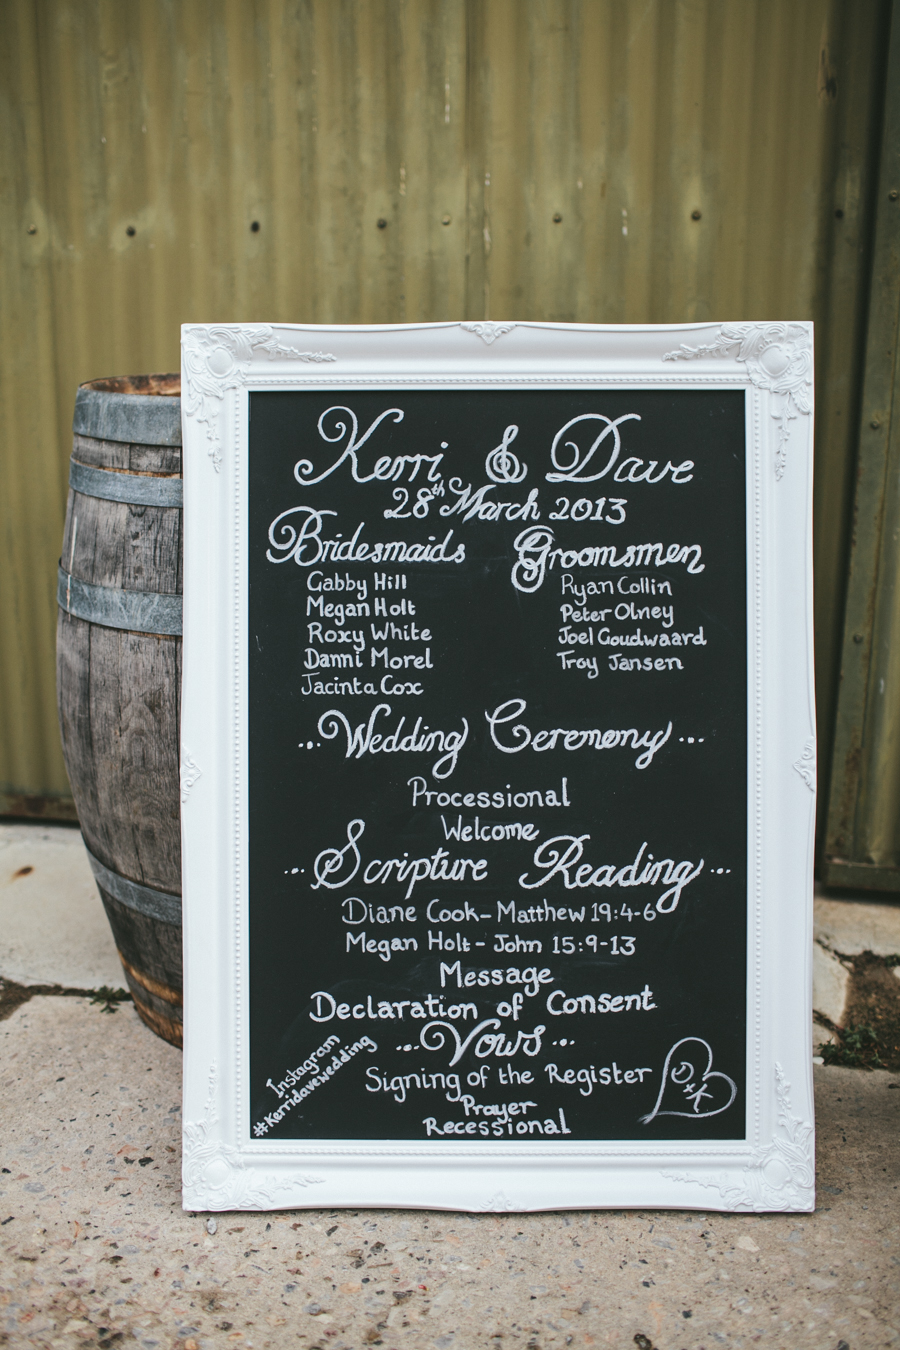 Kerri & Dave
28th March 2013
Bridesmaids
Gabby Hill
Megan Holt
Roxy White
Danni Morel
Jacinta Cox
Groomsmen
Ryan Collin
Peter Olney
Joel Goudwaard
Troy Jansen
...Wedding Ceremony...
Processional
Welcome
...Scripture Reading...
Diane Cook - Matthew 19:4-6
Megan Holt - John 15:9-13
Message
Declaration of Consent
...Vows...
Signing of the Register
Prayer
Recessional
Instagram
#Kerridavewedding
D+K